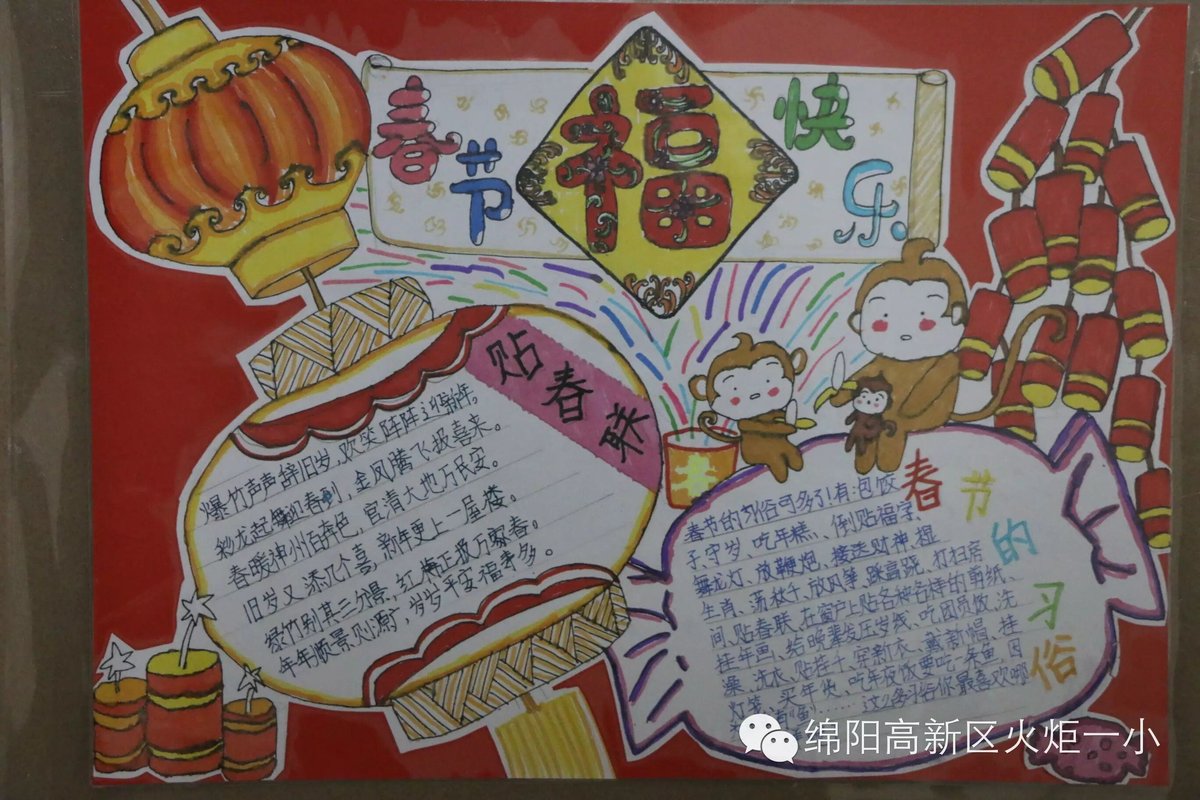 春节 福 快乐
贴春联
爆竹声声辞旧岁，欢笑阵阵迎新年。
彩龙起舞迎春到，金凤腾飞报喜来。
春暖神州百奔色，官清大地万民安。
旧岁又添几个喜，新年更上一层楼。
绿竹别其三分景，红梅正报万家春。
年年顺景则源广，岁岁平安福寿多。
春节的习俗
春节的习俗可多了！有：包饺
子、守岁、吃年糕、倒贴福字、
舞龙灯、放鞭炮、接送财神、祖
生肖、荡秋千、放风筝、踩高跷、打扫房
间、贴春联、在窗户上贴各种各样的剪纸、
挂年画、给晚辈发压岁钱、吃团员饭、洗
澡、洗衣、贴挂千、穿新衣、戴新帽、挂
灯笼、买年货、吃年夜饭要吃一条鱼，因
……这么多习俗你最喜欢哪
绵阳高新区火炬一小